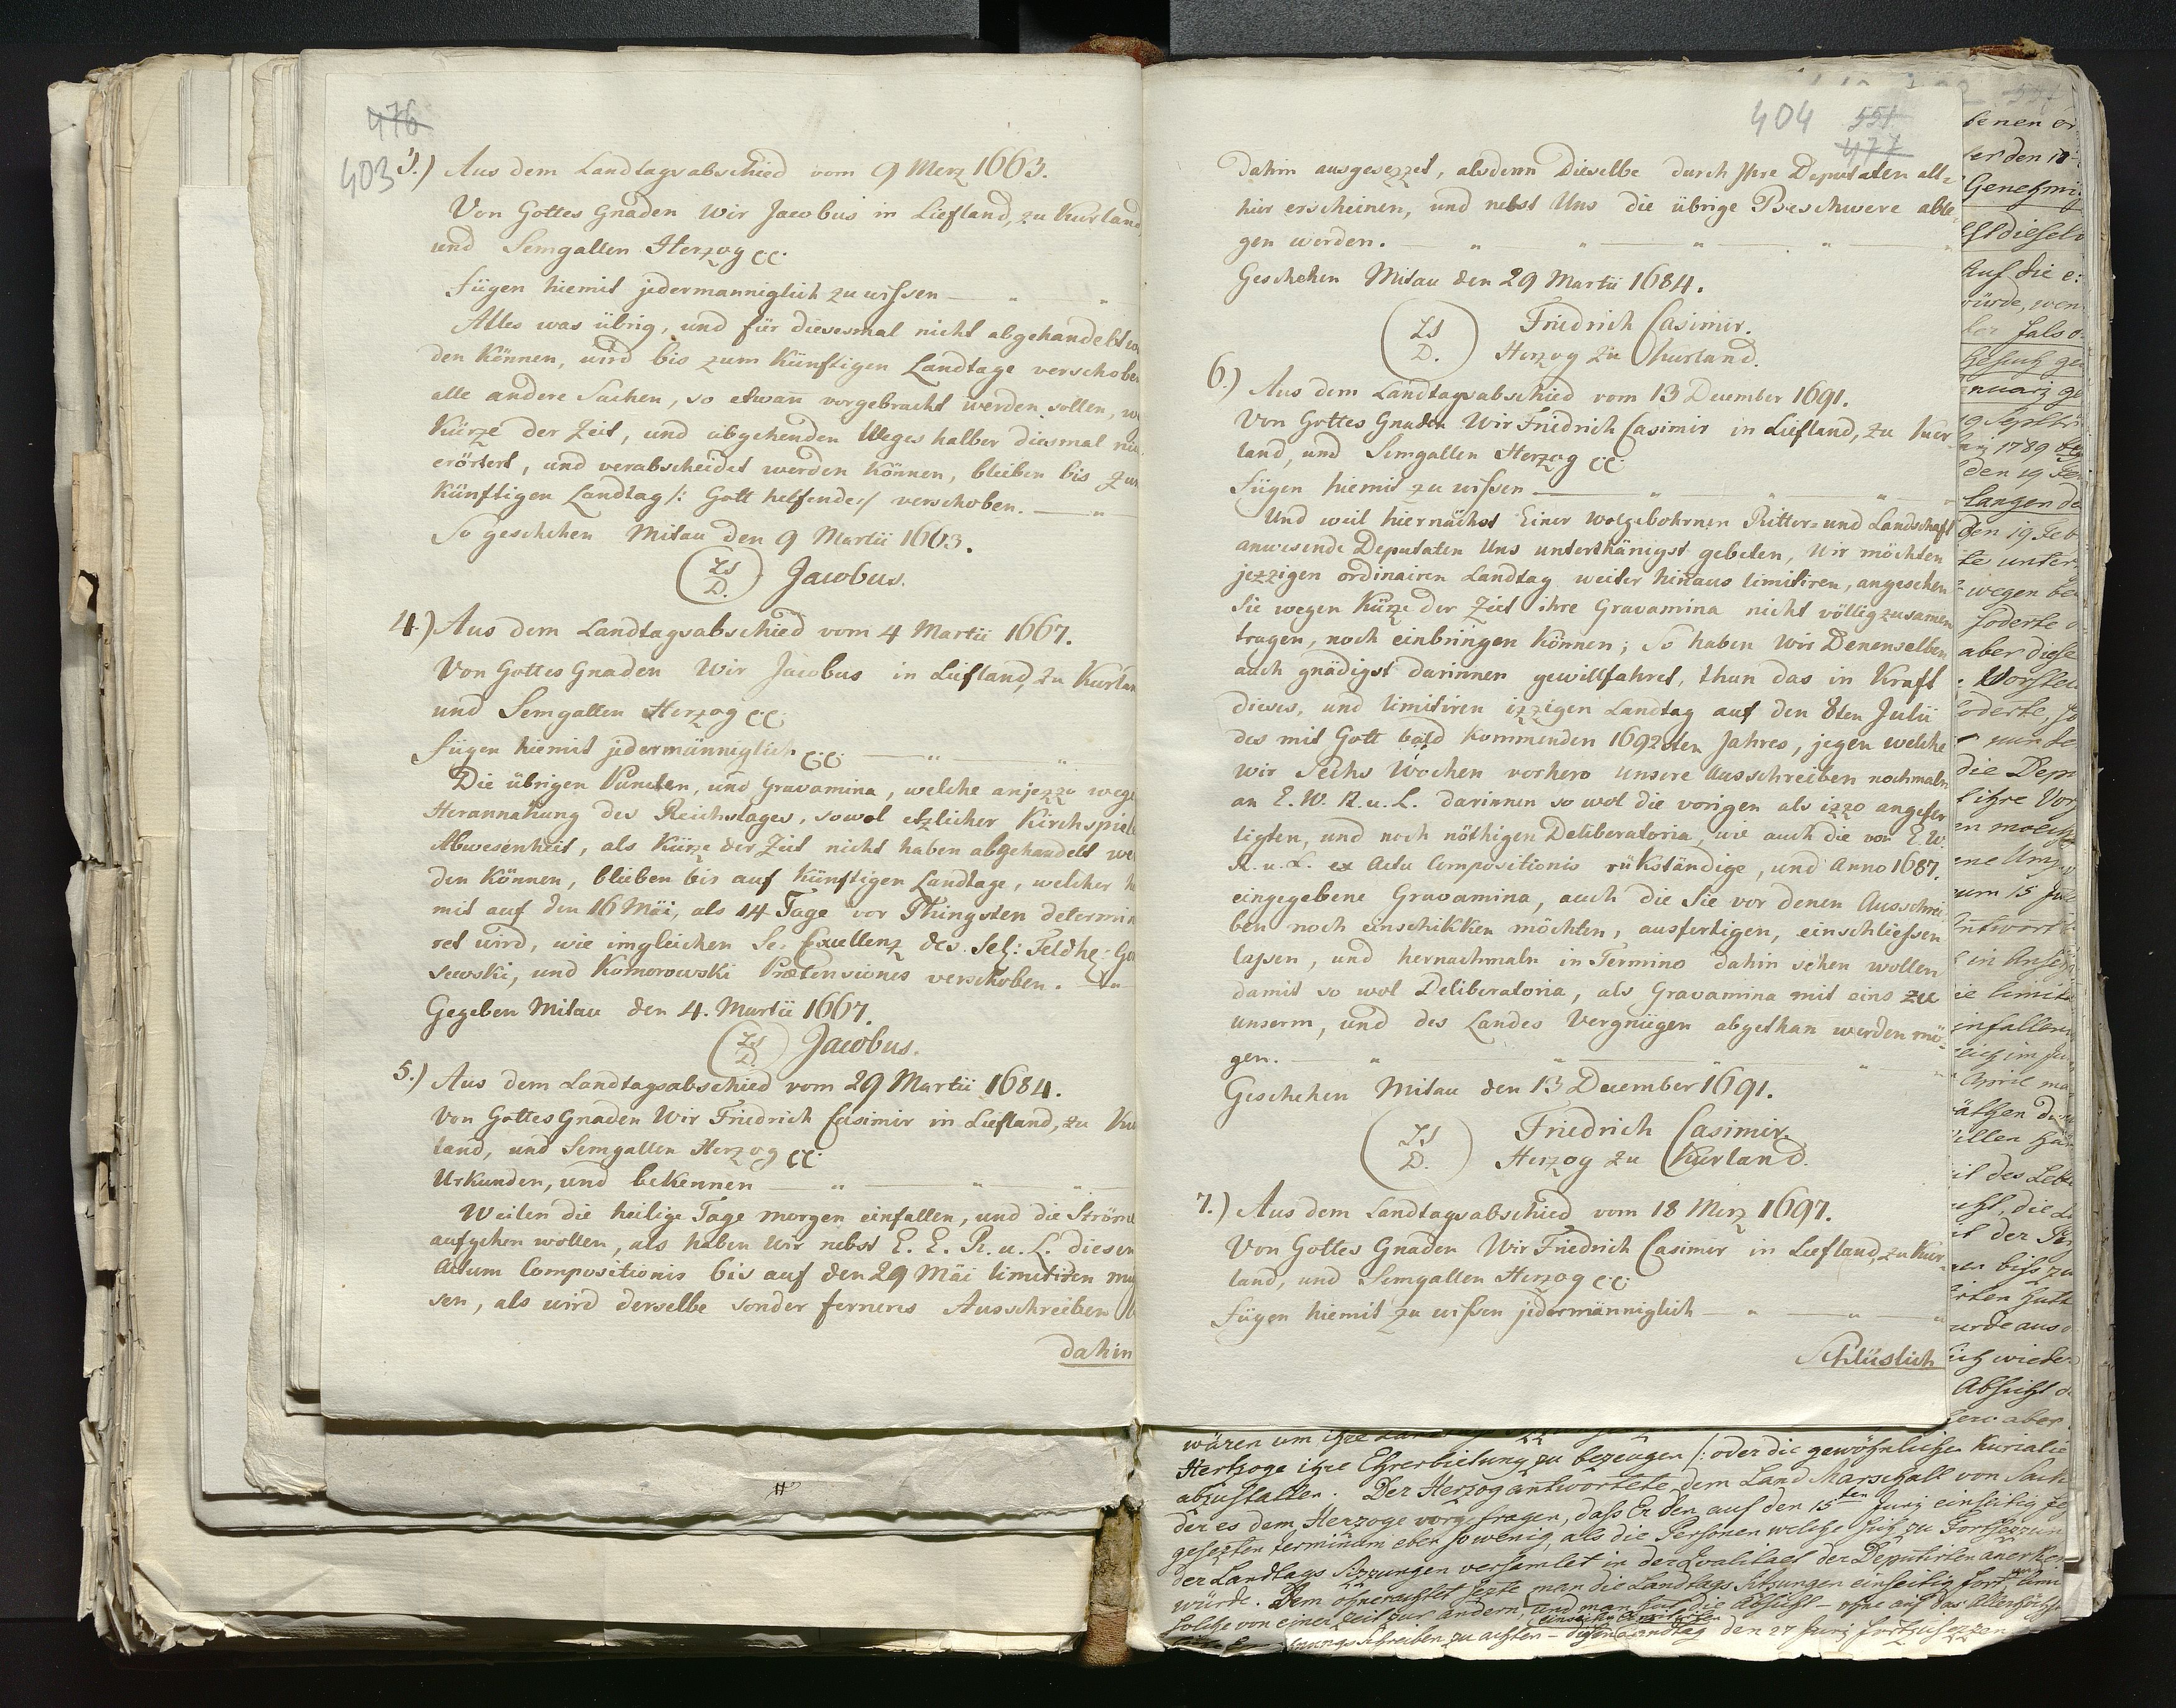 476
403
3.) Aus dem Landtagsabschied vom 9 Merz 1663.
Von Gottes Gnaden Wir Jacobus in Liefland, zu Kurland
und Semgallen Herzog cc:
Fügen hiemit jedermanniglich zu wissen — " "
Alles was übrig, und für diesesmal nicht abgehandelt
den können, wird bis zum künftigen Landtage verschoben
alle andere Sachen, so etwan vorgebracht werden sollen,
Kürze der Zeit, und abgehenden Weges halber diesmal
erörtert, und verabscheidet werden können, bleiben bis zum
künftigen Landtag /: Gott helfende :/ verschoben. — "
So geschehen Mitau den 9 Martii 1663.
LS
D. Jacobus.
4.) Aus dem Landtagsabschied vom 4 Martii 1667.
Von Gottes Gnaden Wir Jacobus in Liefland, zu Kurlan
und Semgallen Herzog cc:
Fügen hiemit jedermänniglich cc: — " "
Die übrigen Puncten, und Gravamina, welche anjezzo wege
Herannahung des Reichstages, sowol etzlicher Kirchspiele
Abwesenheit, als Kürze der Zeit nicht haben abgehandelt we
den können, blieben bis auf künftigen Landtage, welcher
mit auf den 16 Mäi, als 14 Tage vor Phingsten determin
ret wird, wie imgleichen Se. Excellenz des Sel: Feldhe: Go
sewski, und Komorowski Prætensiones verschoben. — "
Gegeben Mitau den 4. Martii 1667.
LS
D. Jacobus.
5.) Aus dem Landtagsabschied vom 29 Martii 1684.
Von Gottes Gnaden Wir Friedrich Casimir in Liefland, zu Kur
land, und Semgallen Herzog cc:
Urkunden, und bekennen — " — " — "
Weilen die heilige Tage morgen einfallen, und die Ströme
aufgehen wollen, als haben Wir nebst E. E. R. u. L. diesen
Actum Compositionis bis auf den 29 Mäi limitiren
sen, als wird derselbe sonder ferneres Ausschreiben
dahin
404 551
477
dahin ausgesezzet, alsdenn Dieselbe durch Ihre Deputaten all-
hier erscheinen, und nebst Uns die übrige Beschwere able-
gen werden. — " — " — " — " — "
Geschehen Mitau den 29 Martii 1684.
LS
D. Friedrich Casimir.
Herzog zu Churland.
6.) Aus dem Landtagsabschied vom 13 December 1691.
Von Gottes Gnaden Wir Friedrich Casimir in Liefland, zu Kur-
land, und Semgallen Herzog cc:
Fügen hiemit zu wissen — " — " — " — "
Und weil hiernächst Einer wolgebohrnen Ritter- und Landschaft
anwesende Deputaten Uns unterthänigst gebeten, Wir möchten
jezzigen ordinairen Landtag weiter hinaus limitiren, angesehen
Sie wegen Kürze der Zeit ihre Gravamina nicht völlig zusammen
tragen, noch einbringen können; So haben Wir Denenselben
auch gnädigst darinnen gewillfahret, thun das in Kraft
dieses, und limitiren izzigen Landtag auf den 8ten Julii
des mit Gott bald kommenden 1692sten Jahres, jegen welche
Wir Sechs Wochen vorhero unsere Ausschreiben nochmaln
an E. W. R. u. L. darinnen so wol die vorigen als izzo angefer
tigten, und noch nöthigen Deliberatoria, wie auch die von E. W.
R. u. L. ex Actu Compositionis rükständige, und Anno 1687.
eingegebene Gravamina, auch die Sie vor denen Ausschrei-
ben noch einschikken möchten, ausfertigen, einschliessen
lassen, und hernachmaln in Termino dahin sehen wollen
damit so wol Deliberatoria, als Gravamina mit eins zu
unserm, und des Landes Vergnügen abgethan werden mö-
gen. — " — " — " — " — "
Geschehen Mitau den 13 December 1691.
LS
D. Friedrich Casimir.
Herzog zu Churland.
7.) Aus dem Landtagsabschied vom 18 Merz 1697.
Von Gottes Gnaden Wir Friedrich Casimir in Liefland, zu Kur-
land, und Semgallen Herzog cc:
Fügen hiemit zu wissen jedermänniglich — " — " — "
Schlüslich
Genehmi
Auf die
würde, wen
19 Septbr
1789
den 19 Feb
langen de
den 19 Feb
te unter
wegen be
foderte
aber diese
Vorstel
oderte, so
die Depu
ihre Vor
um 15 Jul
in Anseh
einfallen
April ma
äthen
illen
it des Lebe
der
bis zu
urde aus
ich wieder
Absicht
aber
wären um ihre
Hertzoge ihre Ehrerbietung zu bezeugen /: oder die gewöhnlichen Kurialie
abzustatten. Der Herzog antwortete dem Land Marschall von Sack
der es dem Herzoge vorgetragen, dass Er den auf den 15ten Junj einseitig
gesezten terminum eben so wenig, als die Personen welche sich zu Fortsezzun
der Landtags Sizzungen versamlet in der Qualitaet der Deputirten anerken
würde. Dem ohnerachtet sezte man die Landtags Sitzungen einseitig fort
solche von einer Zeit zur andern, und man hat die Absicht — ohne auf das Allerhöchste
schreiben zu achten — diesen Landtag den 27 Junj fortzusezzen